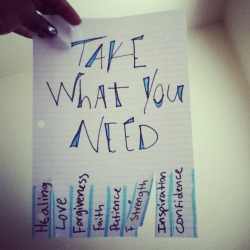 TAKE
WHAT YOU
NEED
Healing
Love
Forgiveness
Faith
Patience
Strength
Inspiration
Confidence